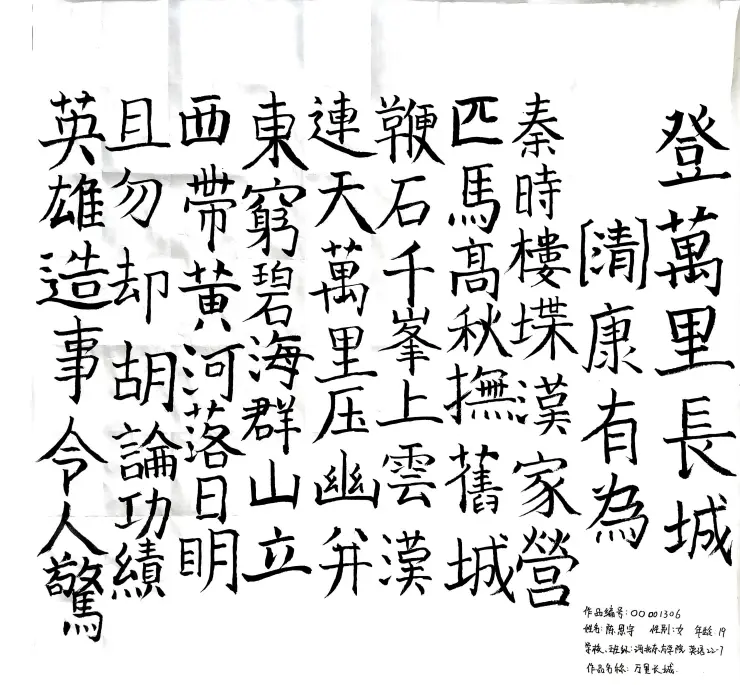 登萬里長城
[清]康有為
秦時樓堞漢家營
匹馬高秋撫舊城
鞭石千峯上雲漢
連天萬里压幽并
東窮碧海群山立
西帶黄河落日明
且勿却胡論功績
英雄造事令人驚
作品编号:00001306
姓名:陈思宇 性别:女 年龄:19
学校、班级: 英语22-7
作品名称: 万里长城